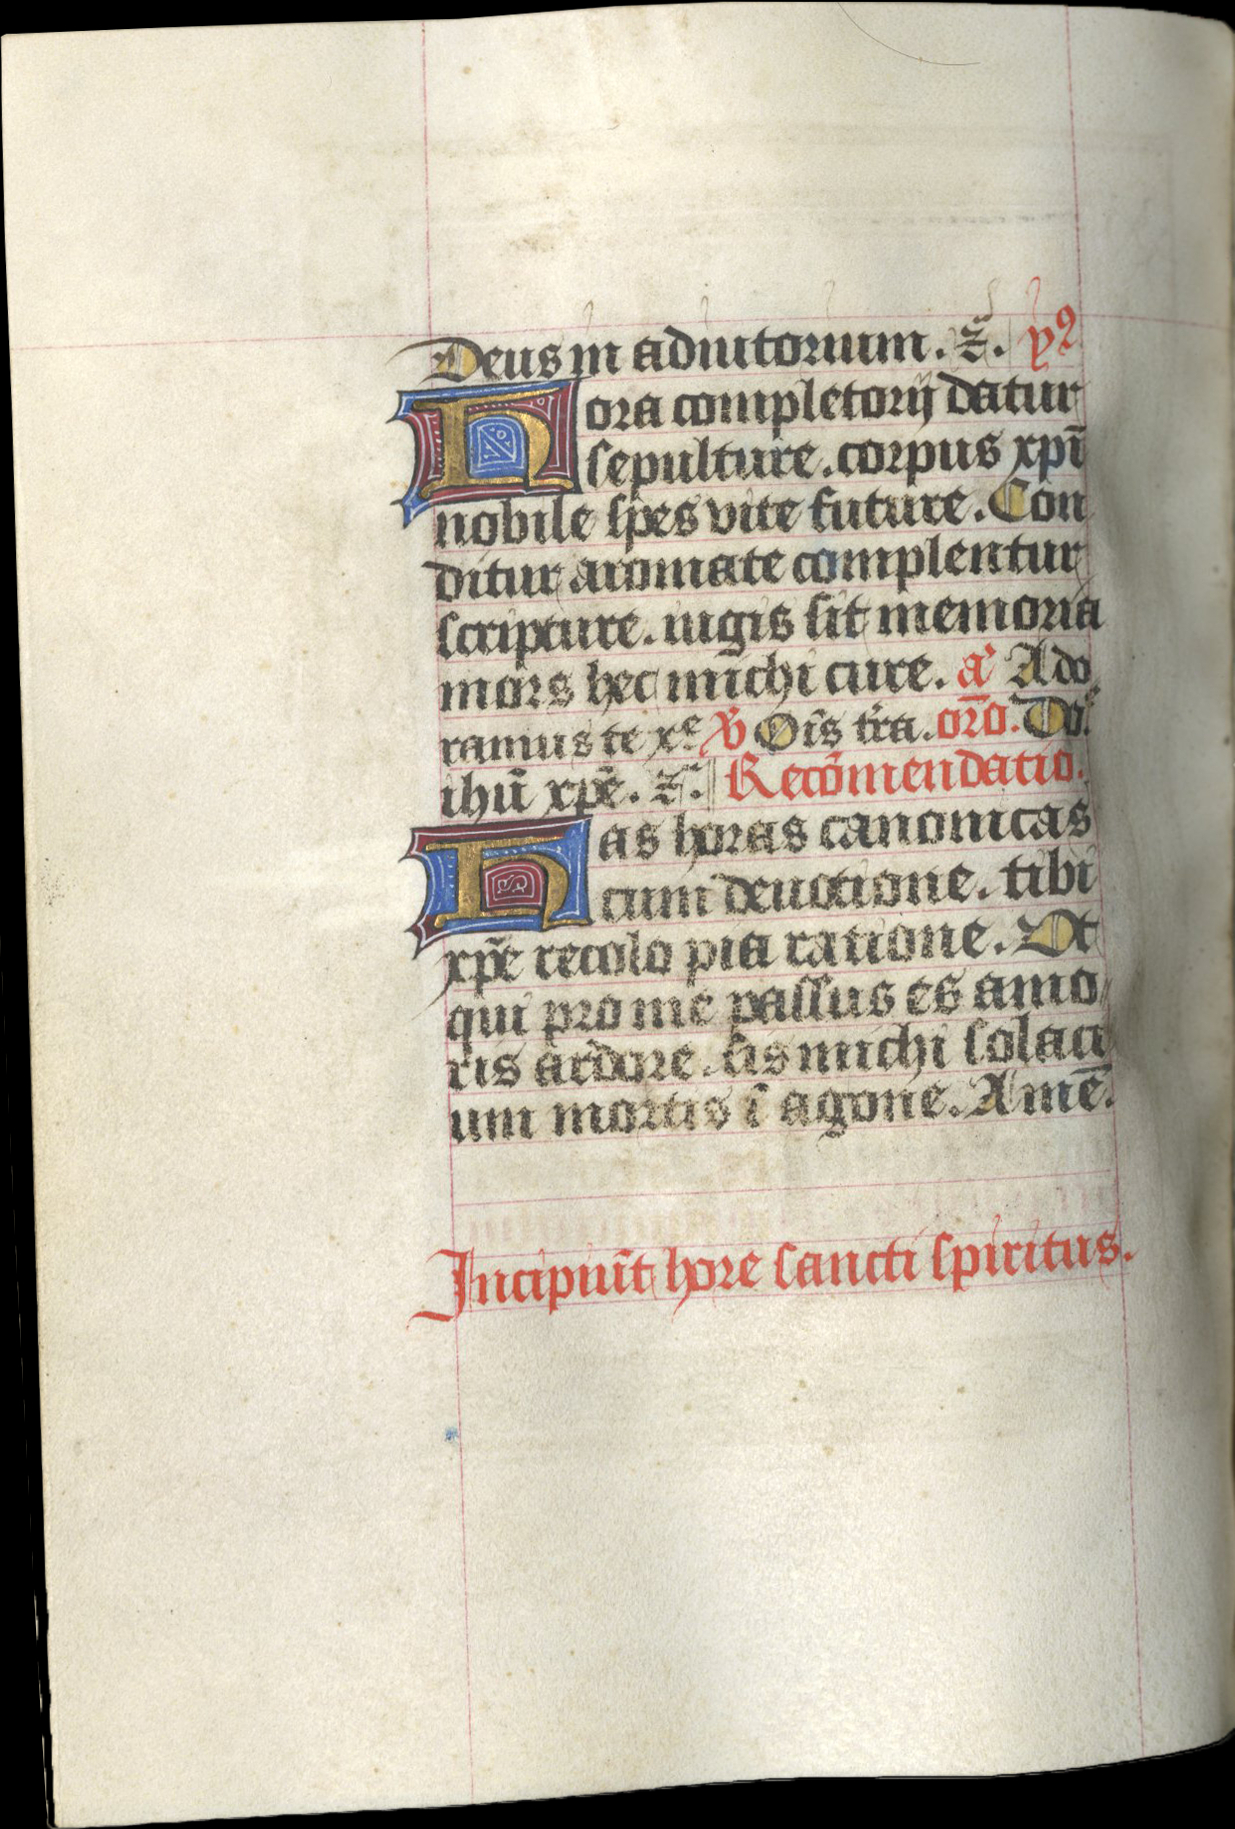 Deus in adiutorium. ⁊̄. yꝰ
Hora completorij datur
sepulture. corpus xpī
nobile spes vite future. Con
ditur aromate complentur
scripture. iugis sit memoria
mors hec michi cure. a' Ado
ramus te xe ℣ Oīs tr̄a. or̄o. Do.
ihū xpē. ⁊̄. Recōmendatio.
Has horas canonicas
cum deuotione. tibi
xpē recolo pia ratione. Ut
qui pro me passus es amo
ris ardore. sis michi solaci
um mortis ī agone. Amē.
Incipiūt hore sancti spiritus.